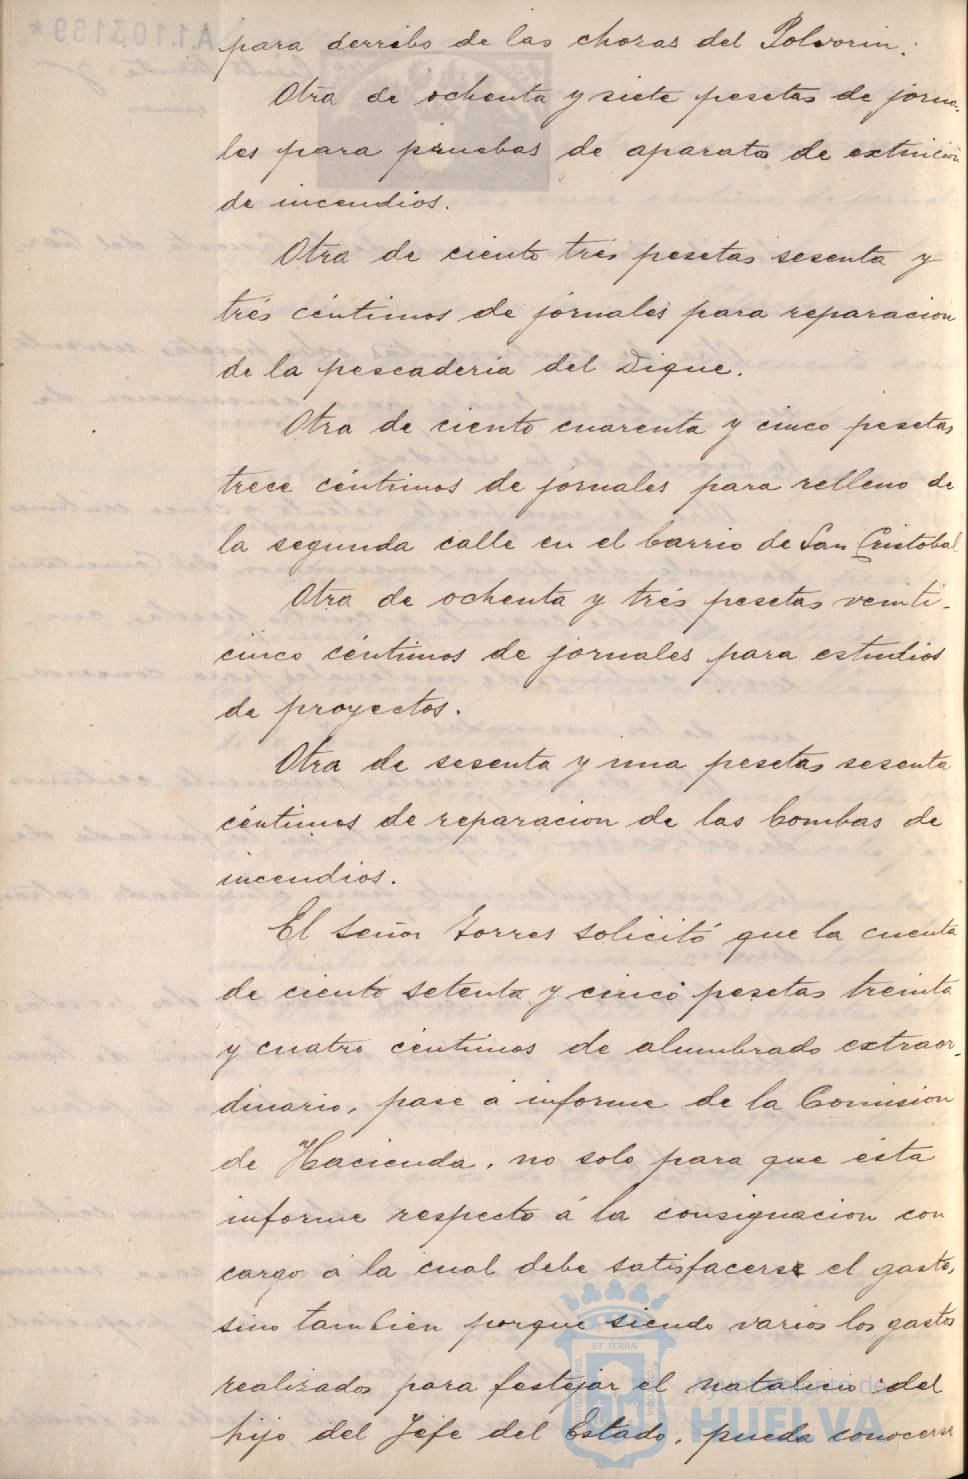 para derribo de las chozas del Polvorin.
Otra de ochenta y siete pesetas de jorna-
les para pruebas de aparatos de extinción
de incendios.
Otra de ciento tres pesetas sesenta y
trés céntimos de jornales para reparacion
de la pescaderia del Dique.
Otra de ciento cuarenta y cinco pesetas
trece céntimos de jornales para relleno de
la segunda calle en el barrio de San Cristobal
Otra de ochenta y trés pesetas veinti-
cinco céntimos de jornales para estudios
de proyectos.
Otra de sesenta y una pesetas sesenta
céntimos de reparacion de las bombas de
incendios.
El Señor Torres solicitó que la cuenta
de ciento setenta y cinco pesetas treinta
y cuatro céntimos de alumbrado extraor-
dinario, pase á informe de la Comision
de Hacienda, no solo para que ésta
informe respecto á la consignacion con
cargo á la cual debe satisfacerse el gasto,
sino tambien porque siendo varios los gastos
realizados para festejar el natalicio del
hijo del Jefe del Estado, pueda conocerse
A.1.103.189*
ET TERRÆ
Ayuntamiento de
HUELVA